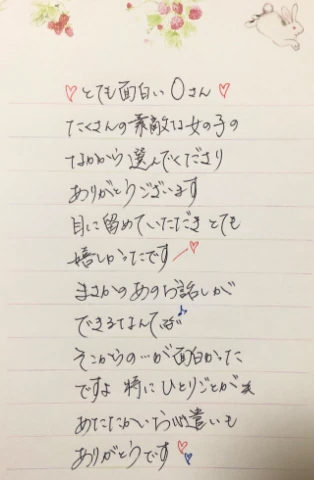 ♡とても面白い Oさん♡
たくさんの素敵な女の子の
なかから選んでくださり
ありがとうございます
目に留めていただき とても
嬉しかったです♡
まさかのあのお話しが
できるなんて
そこからの…が面白かった
ですよ 特にひとりごとが
あたたかいお心遣いも
ありがとうです♡